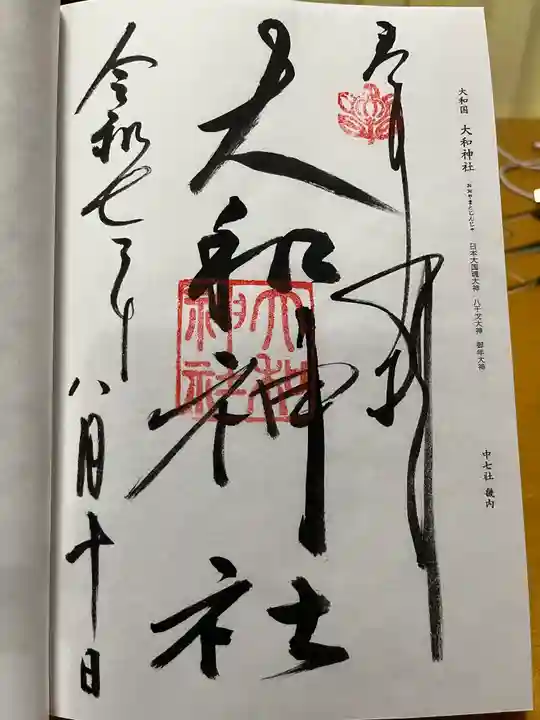 大和国 大和神社 おおやまとじんじゃ 日本大国魂大神 八千戈大神 御年大神
中七社 畿内
奉拝
大和神社
大和神社
令和七年
八月十日